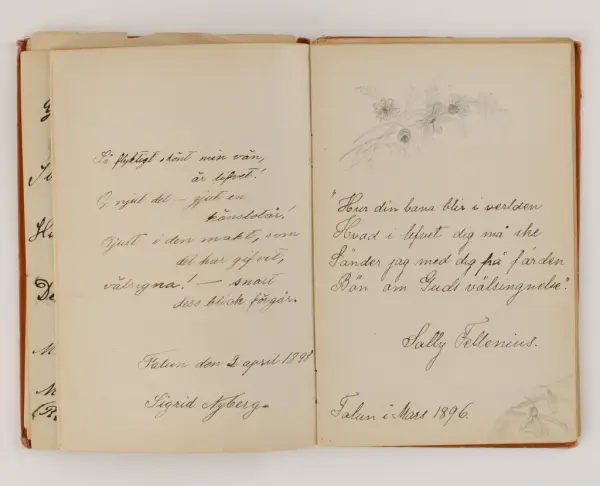 Så flyktigt skönt min vän,
är lifvet!
O, njut det – gjut en
känslotår!
Tjust i den makt, som
det har gifvit,
välsigna! – snart
dess blick förgår.
Falun den 2 april 1898
Sigrid Nyberg.
"Hur din bana blir i verlden
Hvad i lifvet dig må ske
Sänder jag med dig på färden
Bön om Guds välsingnelse".
Sally Fellenius.
Falun i Mars 1896.